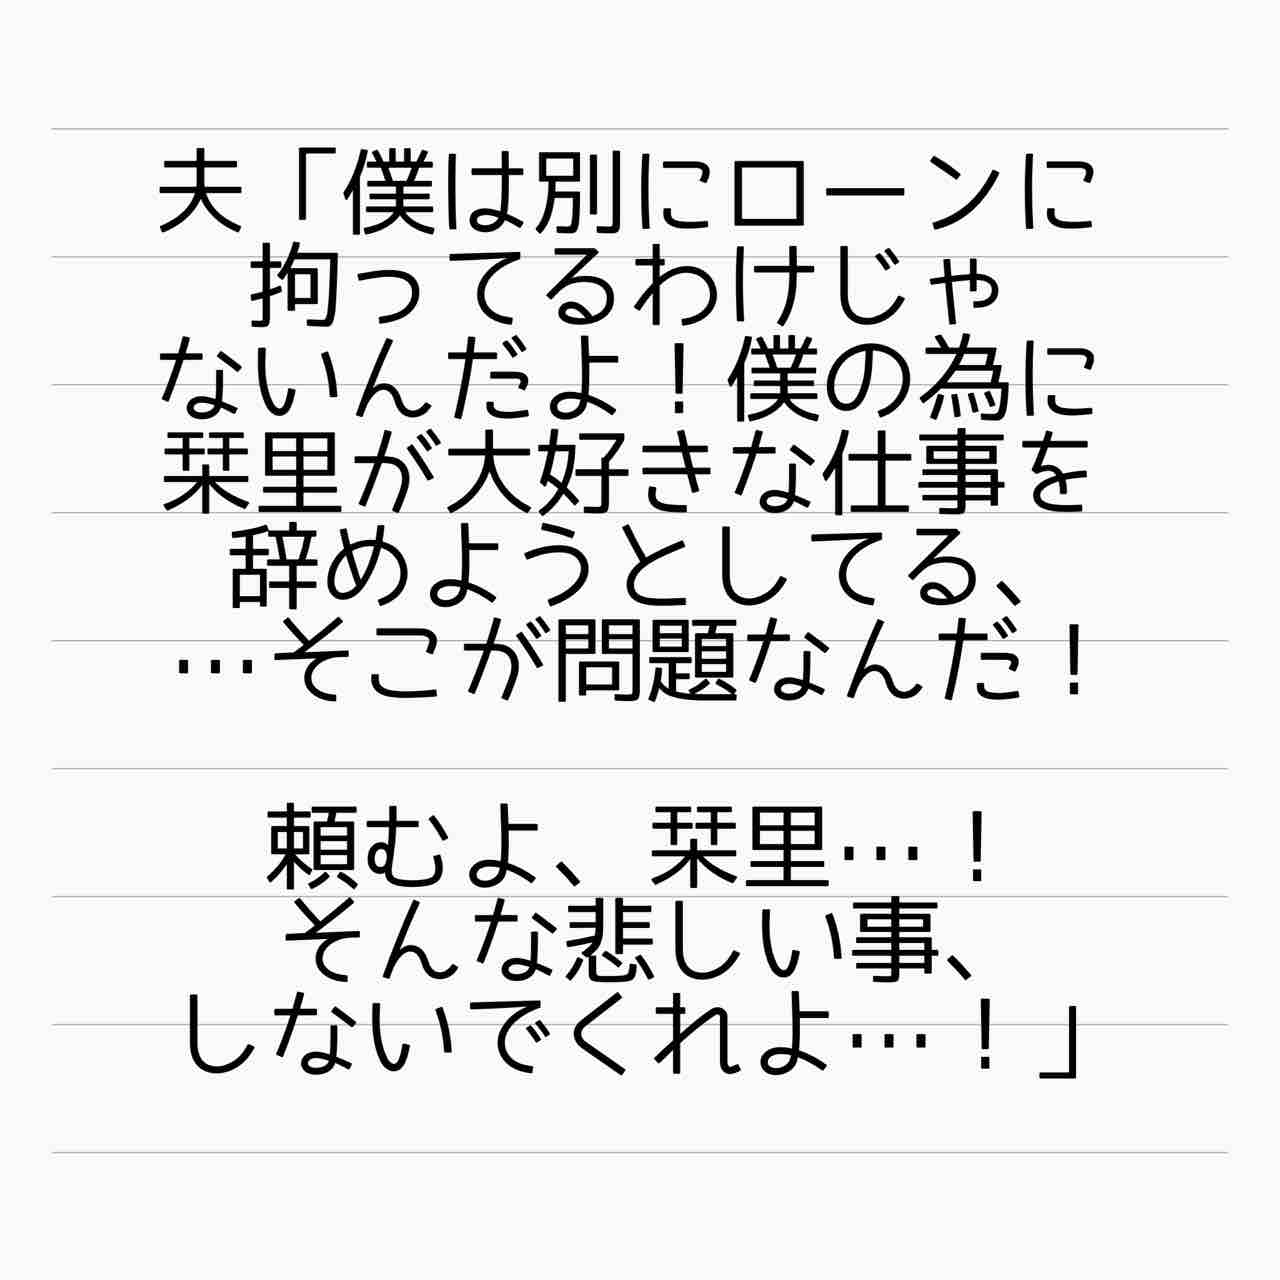 夫「僕は別にローンに
拘ってるわけじゃ
ないんだよ！僕の為に
栞里が大好きな仕事を
辞めようとしてる、
…そこが問題なんだ！
頼むよ、栞里…！
そんな悲しい事、
しないでくれよ…！」